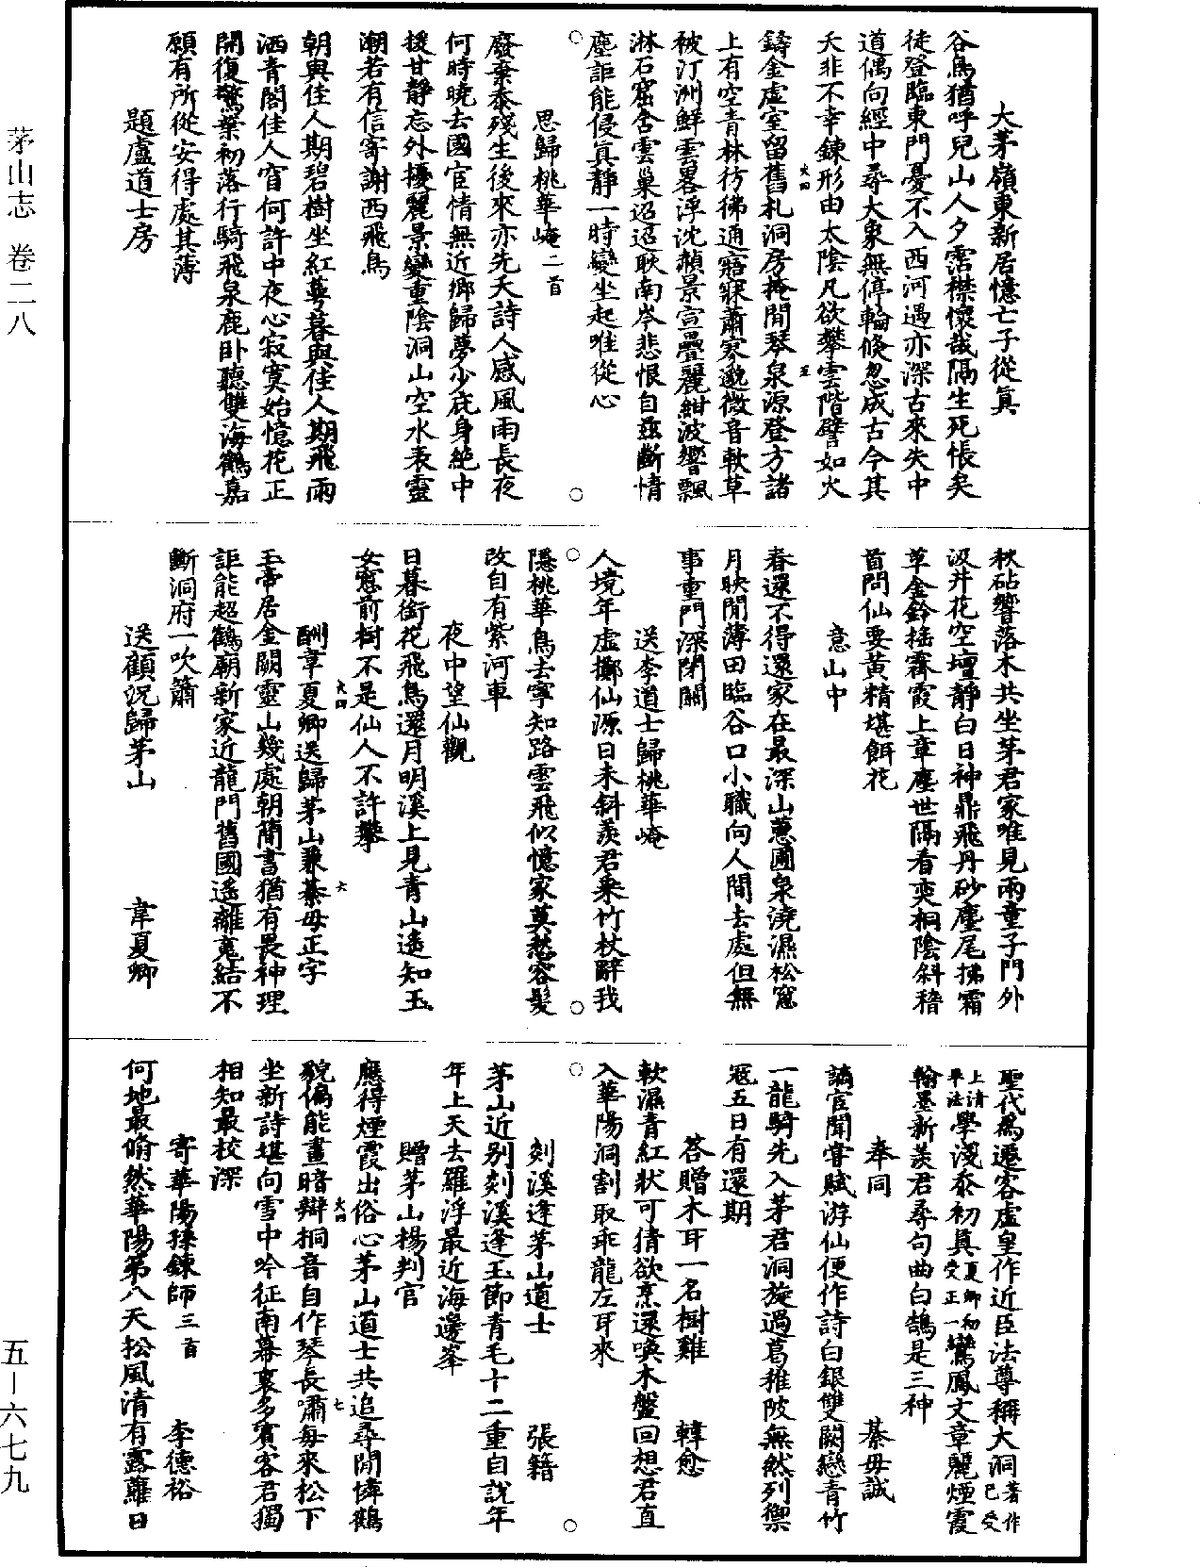 大茅嶺東新居憶亡子從真
谷鳥猶呼兒山人夕霑襟懷哉隔生死悵矣
徒登臨東門憂不入西河遇亦深古來失中
道偶向經中尋大象無停輪倏忽成古今其
夭非不幸鍊形由太陰凡欲攀雲階譬如火
鑄金虛室留舊札洞房掩閒琴泉源登方諸
上有空青林彷彿通寤寐蕭寥邈微音軟草
被汀洲鮮雲畧浮沈赬景宣疊麗紺波響飄
淋石窟含雲巢迢迢耿南岑悲恨自茲斷情
塵詎能侵真靜一時變坐起唯從心
思歸桃華崦二首
廢棄忝殘生後來亦先夭詩人感風雨長夜
何時曉去國宦情無近鄉歸夢少庇身絕中
援甘靜忘外擾麗景變重陰洞山空水表靈
潮若有信寄謝西飛鳥
朝與佳人期碧樹坐紅萼暮與佳人期飛雨
洒青閣佳人窅何許中夜心寂寞始憶花正
開復驚葉初落行騎飛泉鹿臥聽雙海鶴嘉
願有所從安得處其薄
題盧道士房
秋砧響落木共坐茅君家唯見兩童子門外
汲井花空壇靜白日神鼎飛丹砂麈尾拂霜
草金鈴搖霽霞上章塵世隔看奕桐陰斜稽
首問仙要黃精堪餌花
意山中
春還不得還家在最深山蕙圃泉澆濕松窓
月映閒薄田臨谷口小職向人間去處但無
事重門深閉關
送李道士歸桃華崦
人境年虛擲仙源日未斜羨君乘竹杖辭我
隱桃華鳥去寧知路雲飛似憶家莫愁容髮
改自有紫河車
夜中望仙觀
日暮銜花飛鳥還月明溪上見青山遙知玉
女窓前樹不是仙人不許攀
酬韋夏卿送歸茅山兼綦毋正字
玉帝居金闕靈山幾處朝簡書猶有畏神理
詎能超鶴廟新家近龍門舊國遙離寃結不
斷洞府一吹簫
送顧況歸茅山　韋夏卿
聖代爲遷客虛皇作近臣法尊稱大洞著作已受
上清畢法學淺忝初真夏卿初受正一鸞鳳文章麗煙霞
翰墨新羨君尋句曲白鵠是三神
奉同　綦毋誠
謫宦聞嘗賦游仙便作詩白銀雙闕戀青竹
一龍騎先入茅君洞旋過葛稚陂無然列禦
冦五日有還期
荅贈木耳一名樹雞　韓愈
軟濕青紅狀可猜欲烹還喚木盤回想君直
入華陽洞割取乖龍左耳來
剡溪逢茅山道士　張籍
茅山近別剡溪逢玉節青毛十二重自說年
年上天去羅浮最近海邊峯
贈茅山楊判官
應得煙霞出俗心茅山道士共追尋閒憐鶴
貌偏能畫暗辯桐音自作琴長嘯每來松下
坐新詩堪向雪中吟征南幕裏多賓客君獨
相知最校深
寄華陽孫鍊師三首　李德裕
何地最翛然華陽第八天松風清有露蘿日
茅山志　卷二八
五—六七九